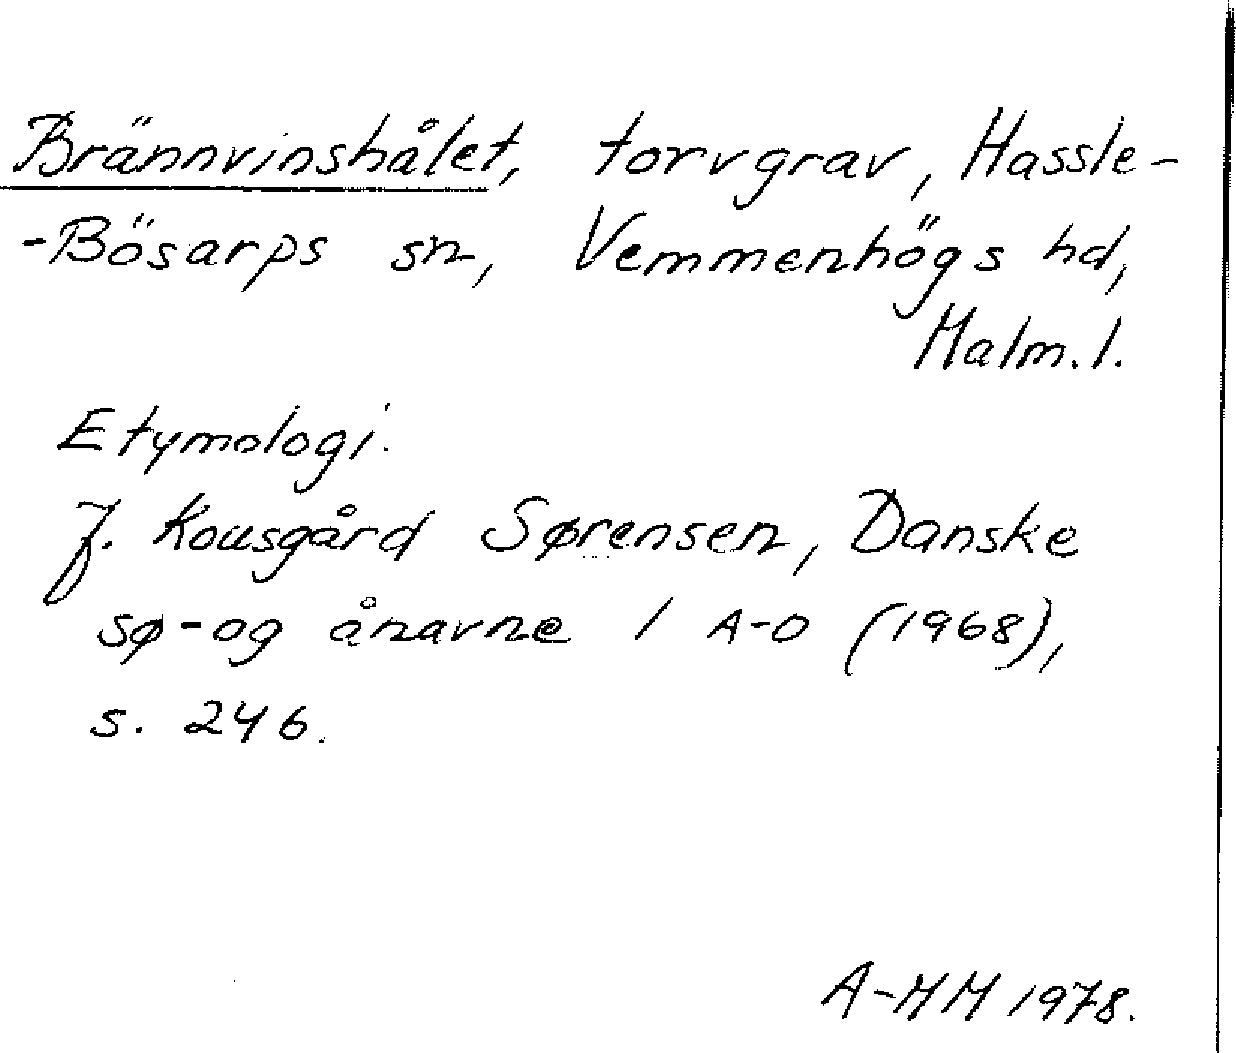 Brännvinshålet, torvgrav, Hassle-
-Bösarps sn, Vemmenhögs hd,
Malm. l.
Etymologi.
J. Kousgård Sørensen, Danske
sø-og ånavne 1 A-O (1968),
s. 246.
A-MM 1978.